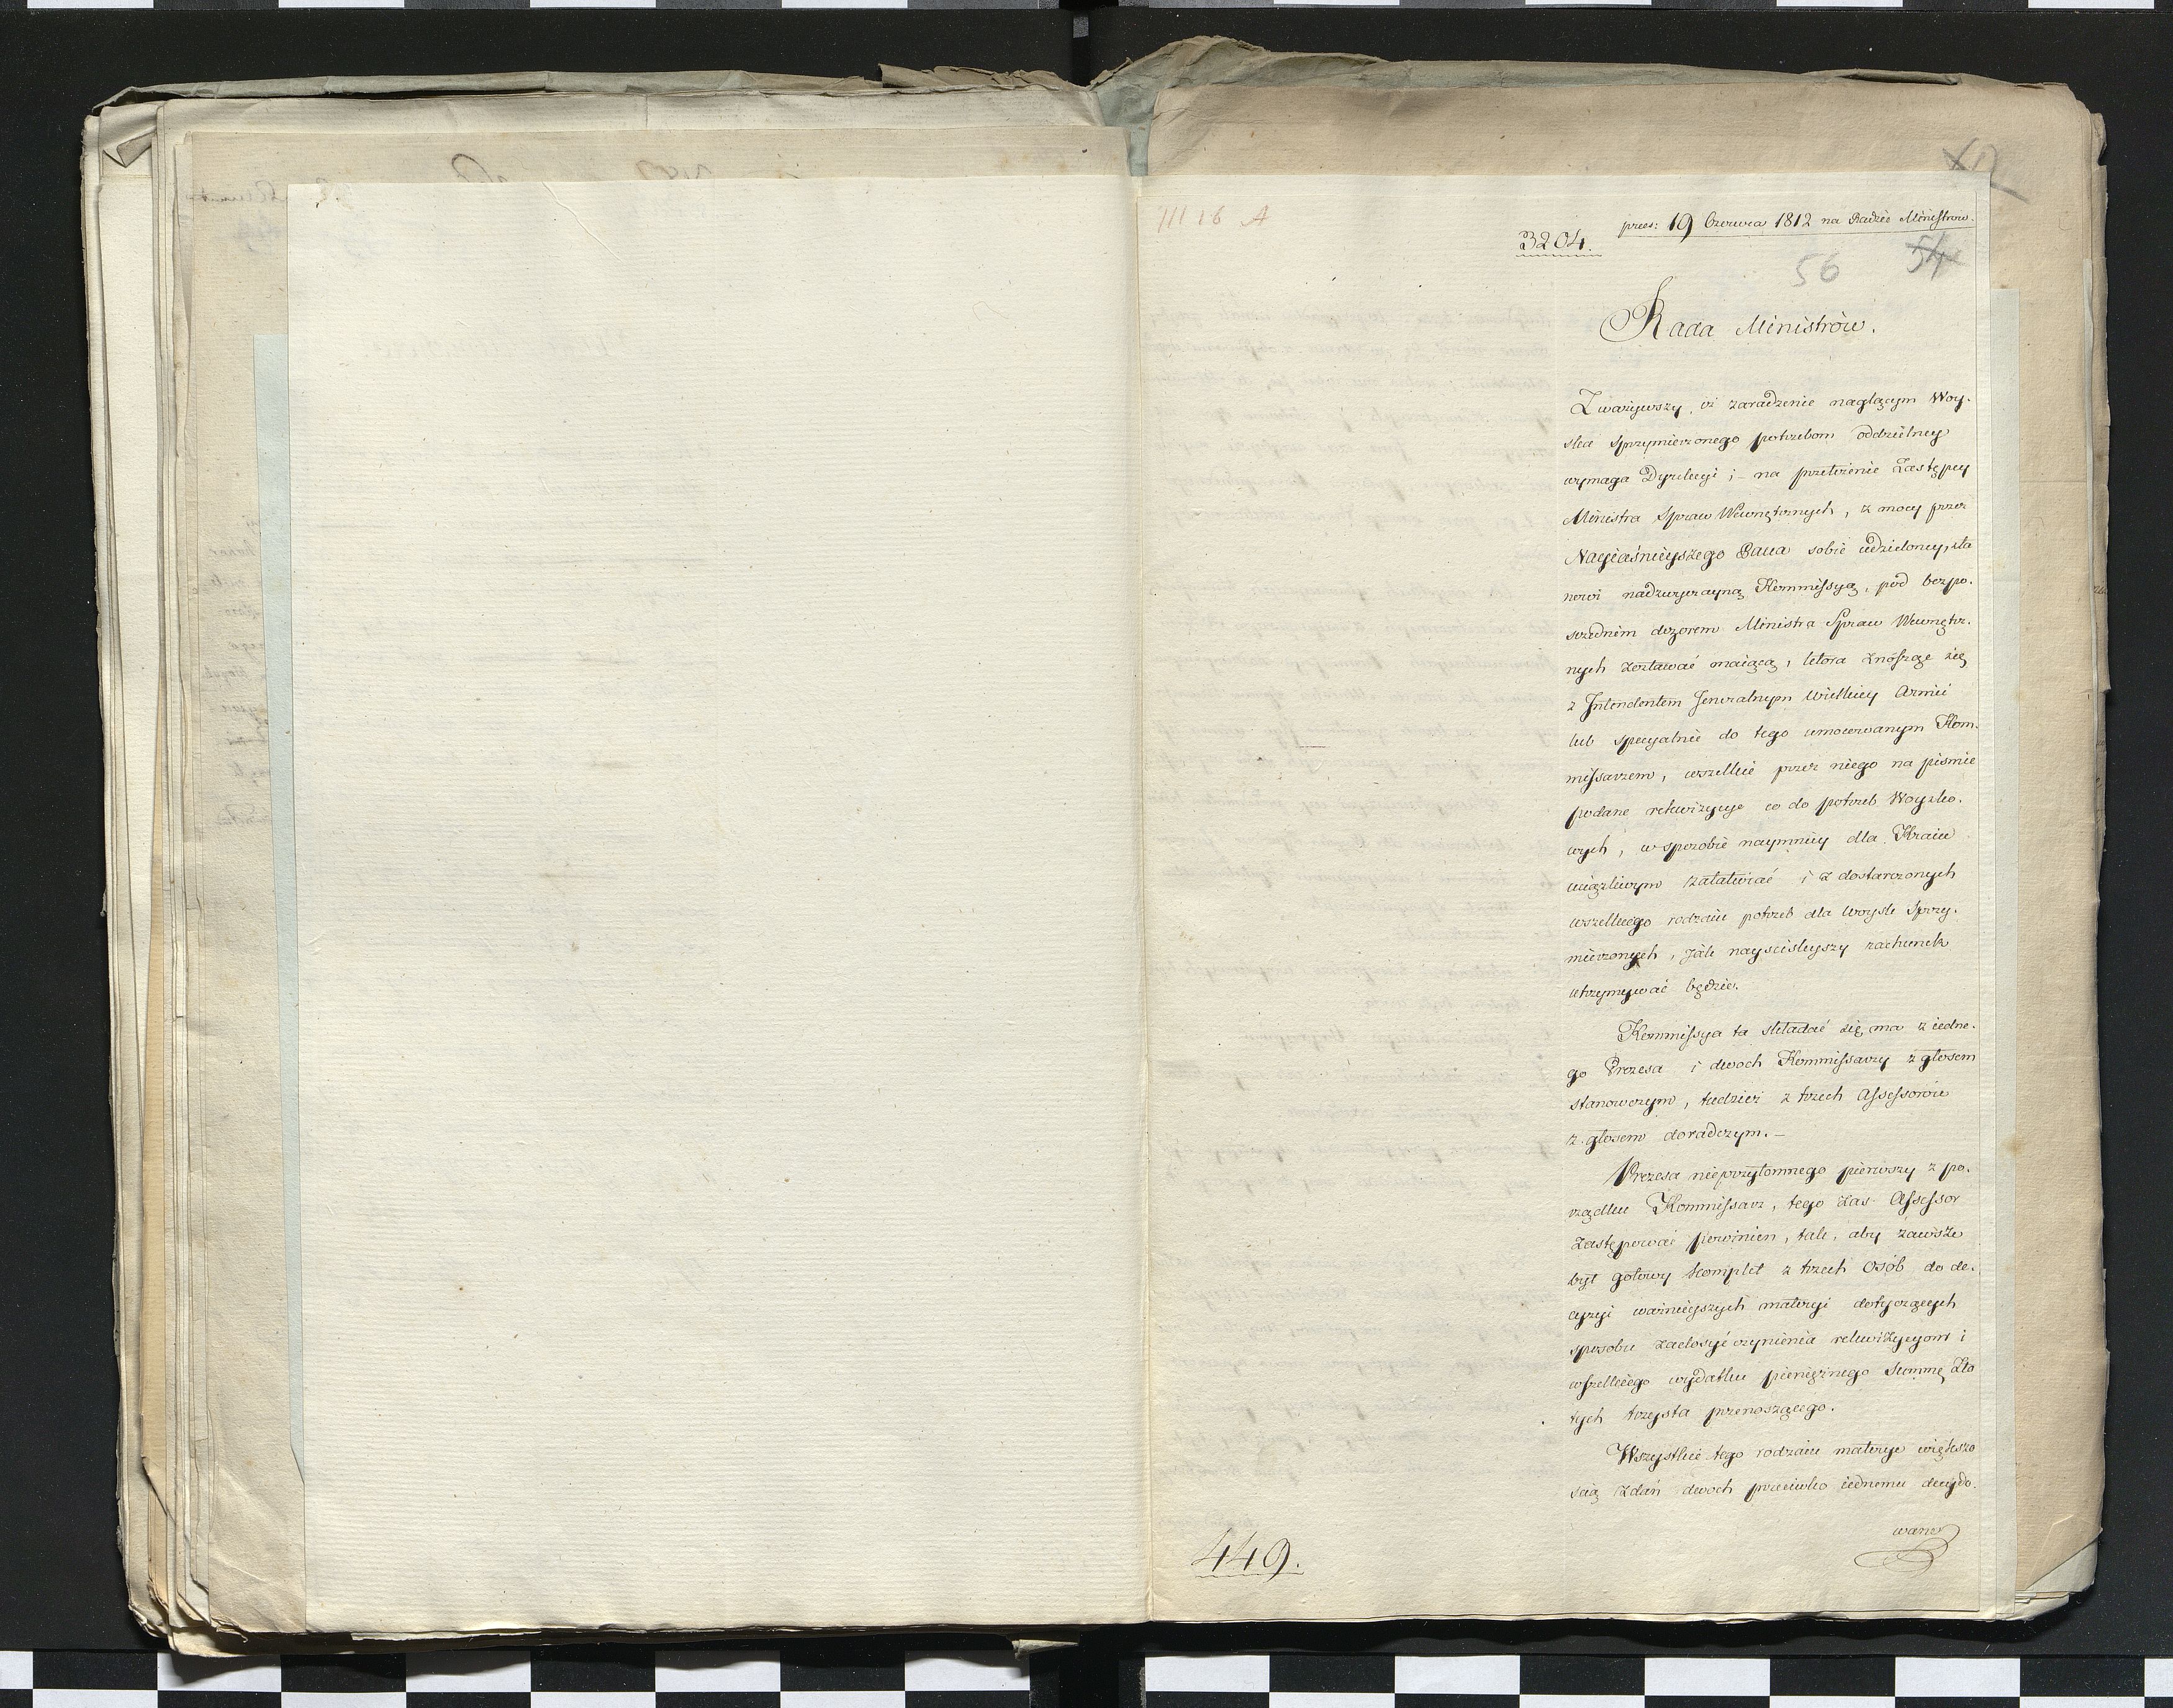 III 16 A
3204.
prez: 19 Czerwca 1812 na Radzie Ministrów.
56 54
Rada Ministrów.
Zważywszy, iż zaradzenie naglącym Woy-
ska sprzymierzonego potrzebom oddzielney
wymaga Dyrekcyi; – na przełożenie Zastępcy
Ministra Spraw Wewnętrznych, z mocy przez
Nayiaśnieyszego Pana sobie udzieloney, sta
nowi nadzwyczayną Kommissyą, pod bezpo-
srednim dozorem Ministra Spraw Wewnętrz-
nych zostawać maiącą, ktora znosząc się
z Intendentem Jeneralnym Wielkiey Armii
lub specyalnie do tego umocowanym Kom-
missarzem, wszelkie przez niego na pismie
podane rekwizycye co do potrzeb Woysko-
wych, w sposobie naymniey dla Kraiu
uciążliwym załatwiać i z dostarczonych
wszelkiego rodzaiu potrzeb dla Woysk Sprzy-
mierzonych, jak nayscisleyszy rachunek
utrzymywać będzie.
Kommissya ta składać się ma z iedne-
go Prezesa i dwoch Kommissarzy z głosem
stanowczym, tudzież z trzech Assessorów
z głosem doradczym. –
Prezesa nieprzytomnego pierwszy z po-
rządku Kommissarz, tego zas Assessor
zastępować powinien, tak, aby zawsze
był gotowy komplet z trzech osób do de-
cyzyi ważnieyszych materyi dotyczących
sposobu zadosyć czynienia rekwizycyom i
wszelkiego wydatku pieniężnego Summę Zło
tych trzysta przenoszącego.
Wszystkie tego rodzaiu materye większo
scią zdań dwoch przeciwko iednemu decydo-
wane
449.